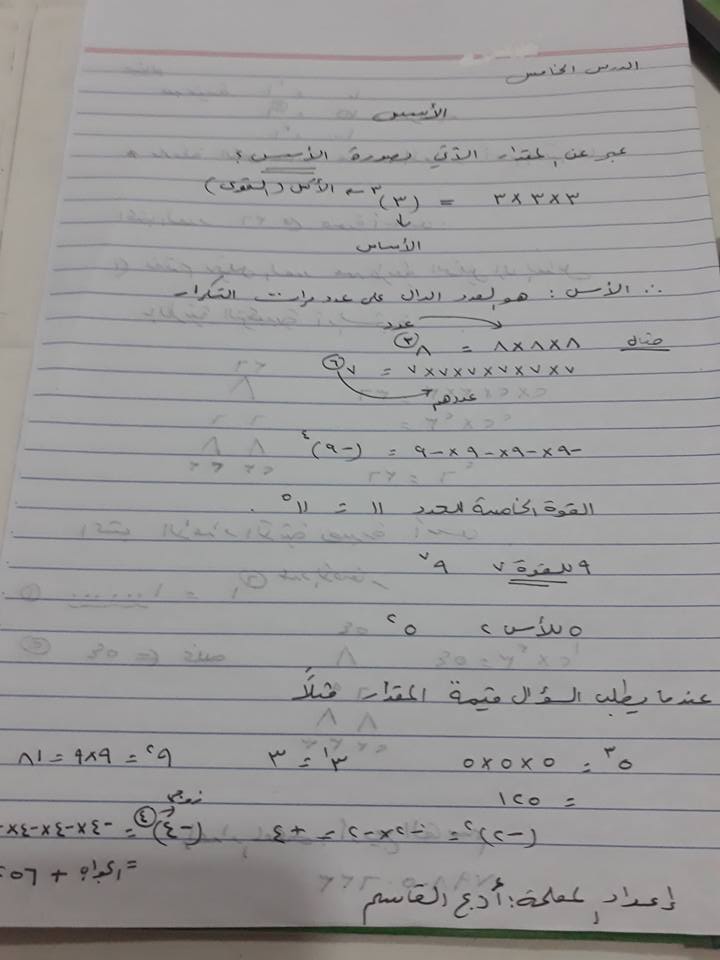 الدرس الخامس
الأسس
عبر عن المقدار الآتي بصورة الأسس ؟
٣×٣×٣ = (٣)^٣ → الأس (القوى)
↓
الأساس
∴ الأسس : هو العدد الدال على عدد مرات التكرار
عدد
مثال ٨×٨×٨ = ٨^٣
٧×٧×٧×٧×٧×٧ = ٧^٦
عددهم
-٩×-٩×-٩×-٩ = (-٩)^٤
القوة الخامسة للعدد ١١ = ١١^٥ .
٩ للقوة ٧ ٩^٧
٥ للأس ٢ ٥^٢
عندما يطلب السؤال قيمة المقدار فمثلاً
٥^٣ = ٥×٥×٥ ٣^١ = ٣ ٩^٢ = ٩×٩ = ٨١
= ١٢٥
زوجي
(-٢)^٢ = -٢×-٢ = +٤ (-٤)^٤ = -٤×-٤×-٤×-
= الجواب + ٢٥
إعداد المعلمة : أدع القاسم